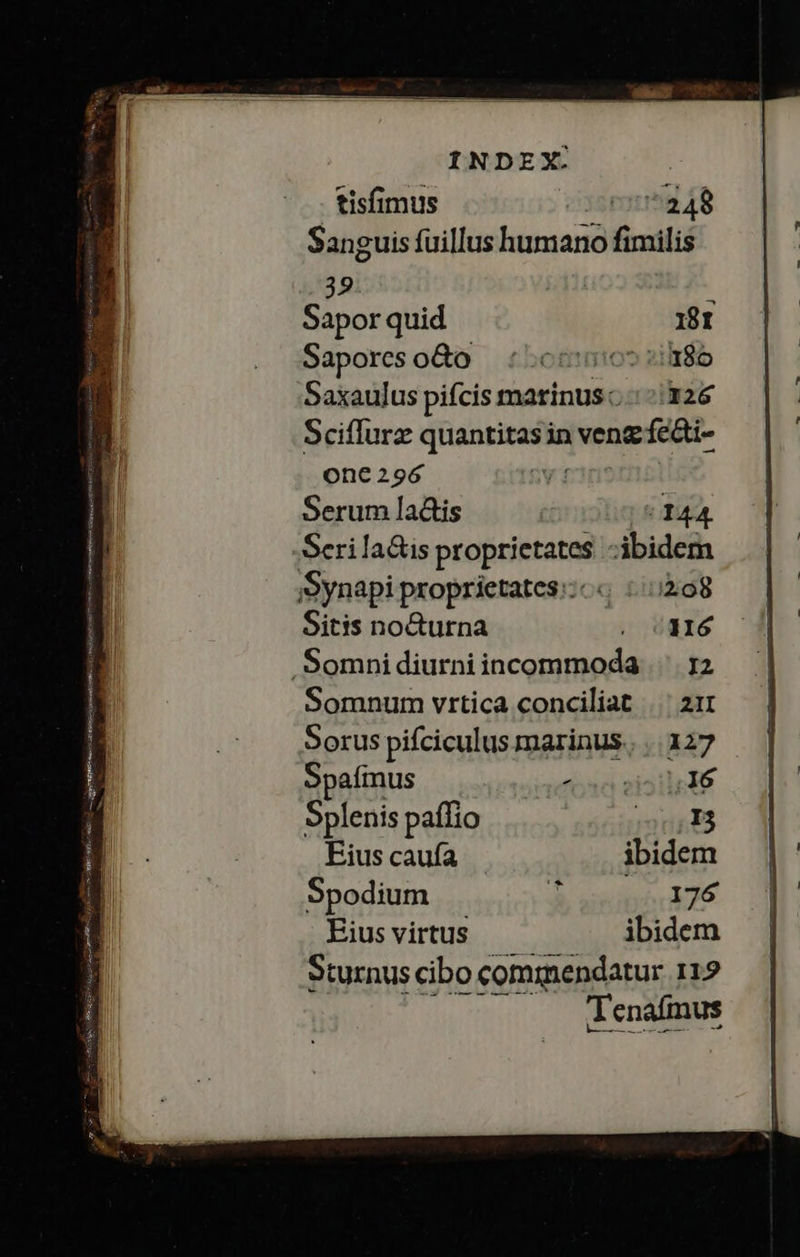 INDEX.
tisſimus 248
Sanguis ſuillus humano ſimilis
39
Sapor quid 181
Sapores octo 180
Saxaulus piſcis marinus 126
Sciſſuræ quantitas in venæ ſecti-
one 296
Serum lactis 144
Seri lactis proprietates ibidem
Synapi proprietates 208
Sitis nocturna 116
Somni diurni incommoda 12
Somnum vrtica conciliat 211
Sorus piſciculus marinus 127
Spaſmus 16
Splenis paſſio 13
Eius cauſa ibidem
Spodium 176
Eius virtus ibidem
Sturnus cibo commendatur 119
Tenaſmus